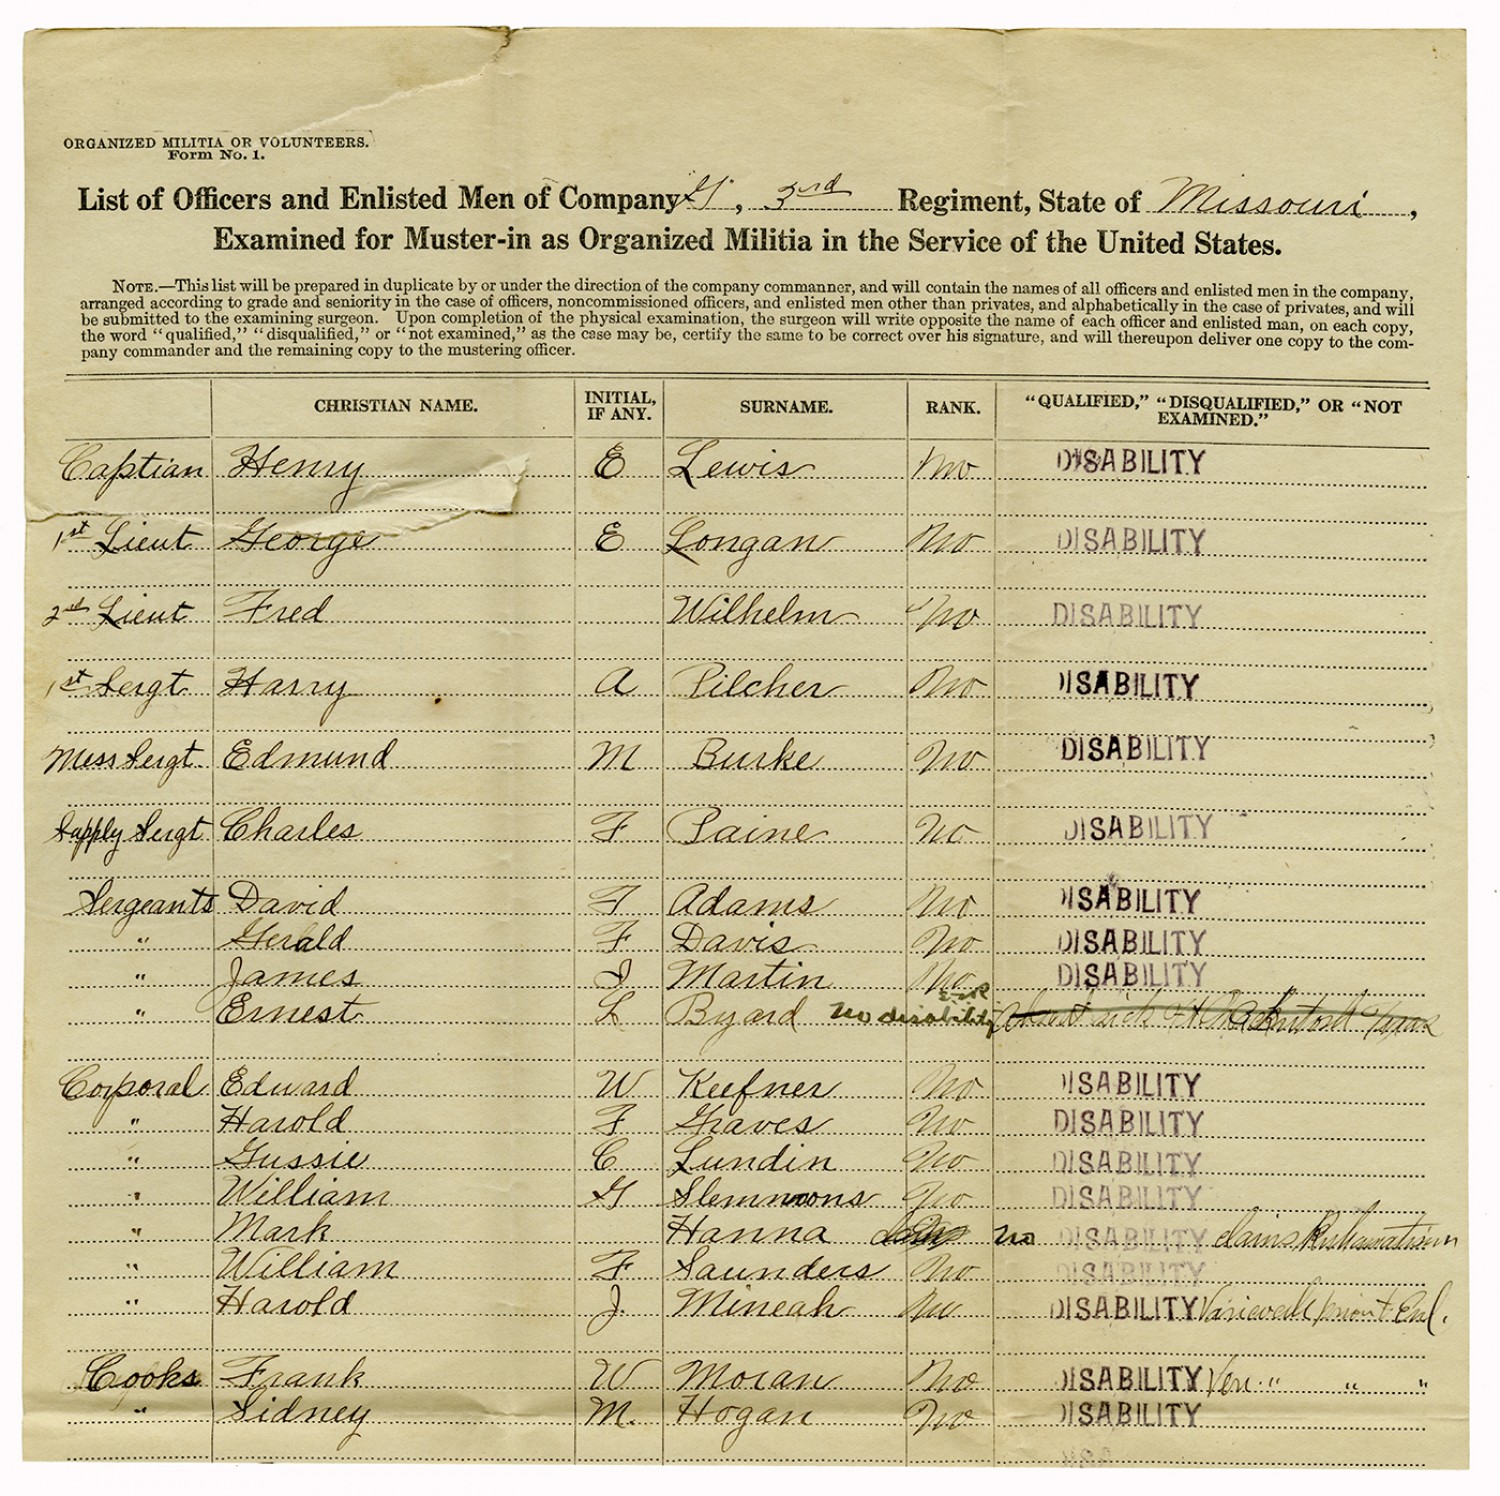 ORGANIZED MILITIA OR VOLUNTEERS.
Form No. 1.
List of Officers and Enlisted Men of Company G, 3rd Regiment, State of Missouri,
Examined for Muster-in as Organized Militia in the Service of the United States.
NOTE.—This list will be prepared in duplicate by or under the direction of the company commanner, and will contain the names of all officers and enlisted men in the company,
arranged according to grade and seniority in the case of officers, noncommissioned officers, and enlisted men other than privates, and alphabetically in the case of privates, and will
be submitted to the examining surgeon. Upon completion of the physical examination, the surgeon will write opposite the name of each officer and enlisted man, on each copy,
the word "qualified," "disqualified," or "not examined," as the case may be, certify the same to be correct over his signature, and will thereupon deliver one copy to the com-
pany commander and the remaining copy to the mustering officer.
CHRISTIAN NAME. INITIAL, IF ANY. SURNAME. RANK. "QUALIFIED," "DISQUALIFIED," OR "NOT EXAMINED."
Captian Henry E Lewis No DISABILITY
1st Lieut George E Longan No DISABILITY
2nd Lieut Fred Wilhelm No DISABILITY
1st Sergt Harry A Pilcher No DISABILITY
Mess Sergt. Edmund M Burke No DISABILITY
Supply Sergt Charles F Paine No DISABILITY
Sergeants David F Adams No DISABILITY
" Gerald F Davis No DISABILITY
" James J Martin No DISABILITY
" Ernest L Byard No disability Absent sick
Corporal Edward W Keefner No DISABILITY
" Harold F Graves No DISABILITY
" Gussie C Lundin No DISABILITY
" William G Slemmons No DISABILITY
" Mark Hanna No DISABILITY claims Rheumatism
" William F Saunders No DISABILITY
" Harold J. Mineah No DISABILITY
Cooks Frank W Moran No DISABILITY Ven " " "
" Sidney M. Hogan No DISABILITY